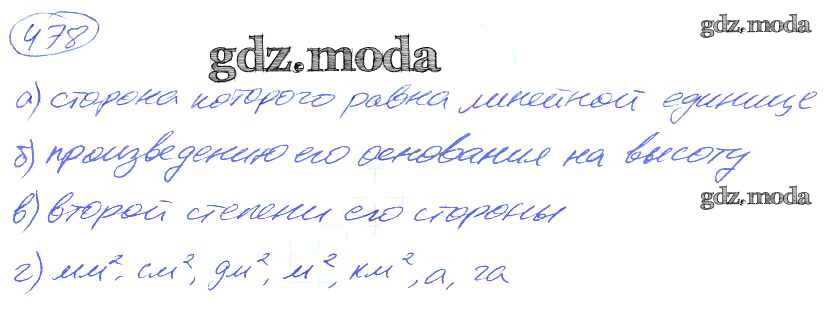 478
gdz.moda
gdz.moda
а) сторона которого равна линейной единице
б) произведению его основания на высоту
в) второй степени его стороны
gdz.moda
г) мм², см², дм², м², км², а, га